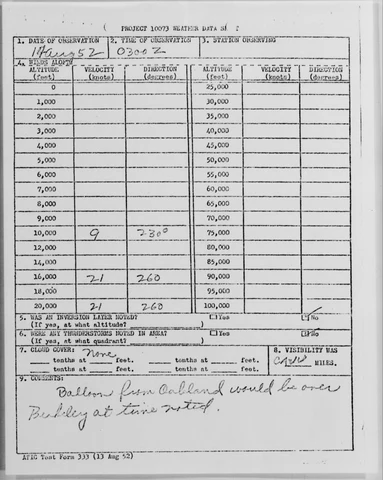 PROJECT 10073 WEATHER DATA
1. DATE OF OBSERVATION 2. TIME OF OBSERVATION 3. STATION OBSERVING
Aug 52 0300 Z
4. WINDS ALOFT:
ALTITUDE VELOCITY DIRECTION ALTITUDE VELOCITY DIRECTION
(feet) (knots) (degrees) (feet) (knots) (degrees)
0 25,000
1,000 30,000
2,000 35,000
3,000 40,000
4,000 45,000
5,000 50,000
6,000 55,000
7,000 60,000
8,000 65,000
9,000 70,000
10,000 9 230° 75,000
12,000 80,000
14,000 85,000
16,000 21 260 90,000
18,000 95,000
20,000 21 260 100,000
5. WAS AN INVERSION LAYER NOTED? Yes No
(If yes, at what altitude? )
6. WERE ANY THUNDERSTORMS NOTED IN AREA? Yes No
(If yes, at what quadrant? )
7. CLOUD COVER: None 8. VISIBILITY WAS
tenths at feet. tenths at feet. MILES.
tenths at feet. tenths at feet.
9. COMMENTS:
Balloon from Oakland would be over
Berkley at time noted.
ATIC Test Form 333 (13 Aug 52)